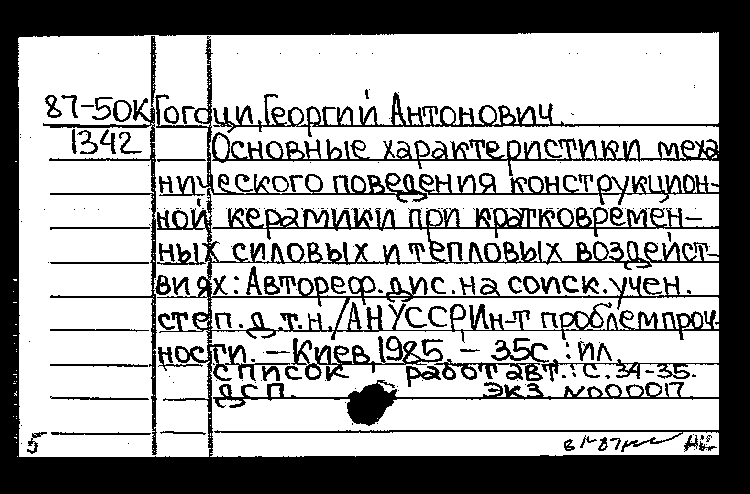 87-50К Гогоци, Георгий Антонович.
1342 Основные характеристики меха
нического поведения конструкцион-
ной керамики при кратковремен-
ных силовых и тепловых воздейст-
виях: Автореф. дис. на соиск. учен.
степ. д.т.н. / АН УССР, Ин-т проблем проч-
ности. — Киев, 1985. — 35с. : ил.
Список работ авт.: с. 34-35.
ДСП. Экз. №000017
5